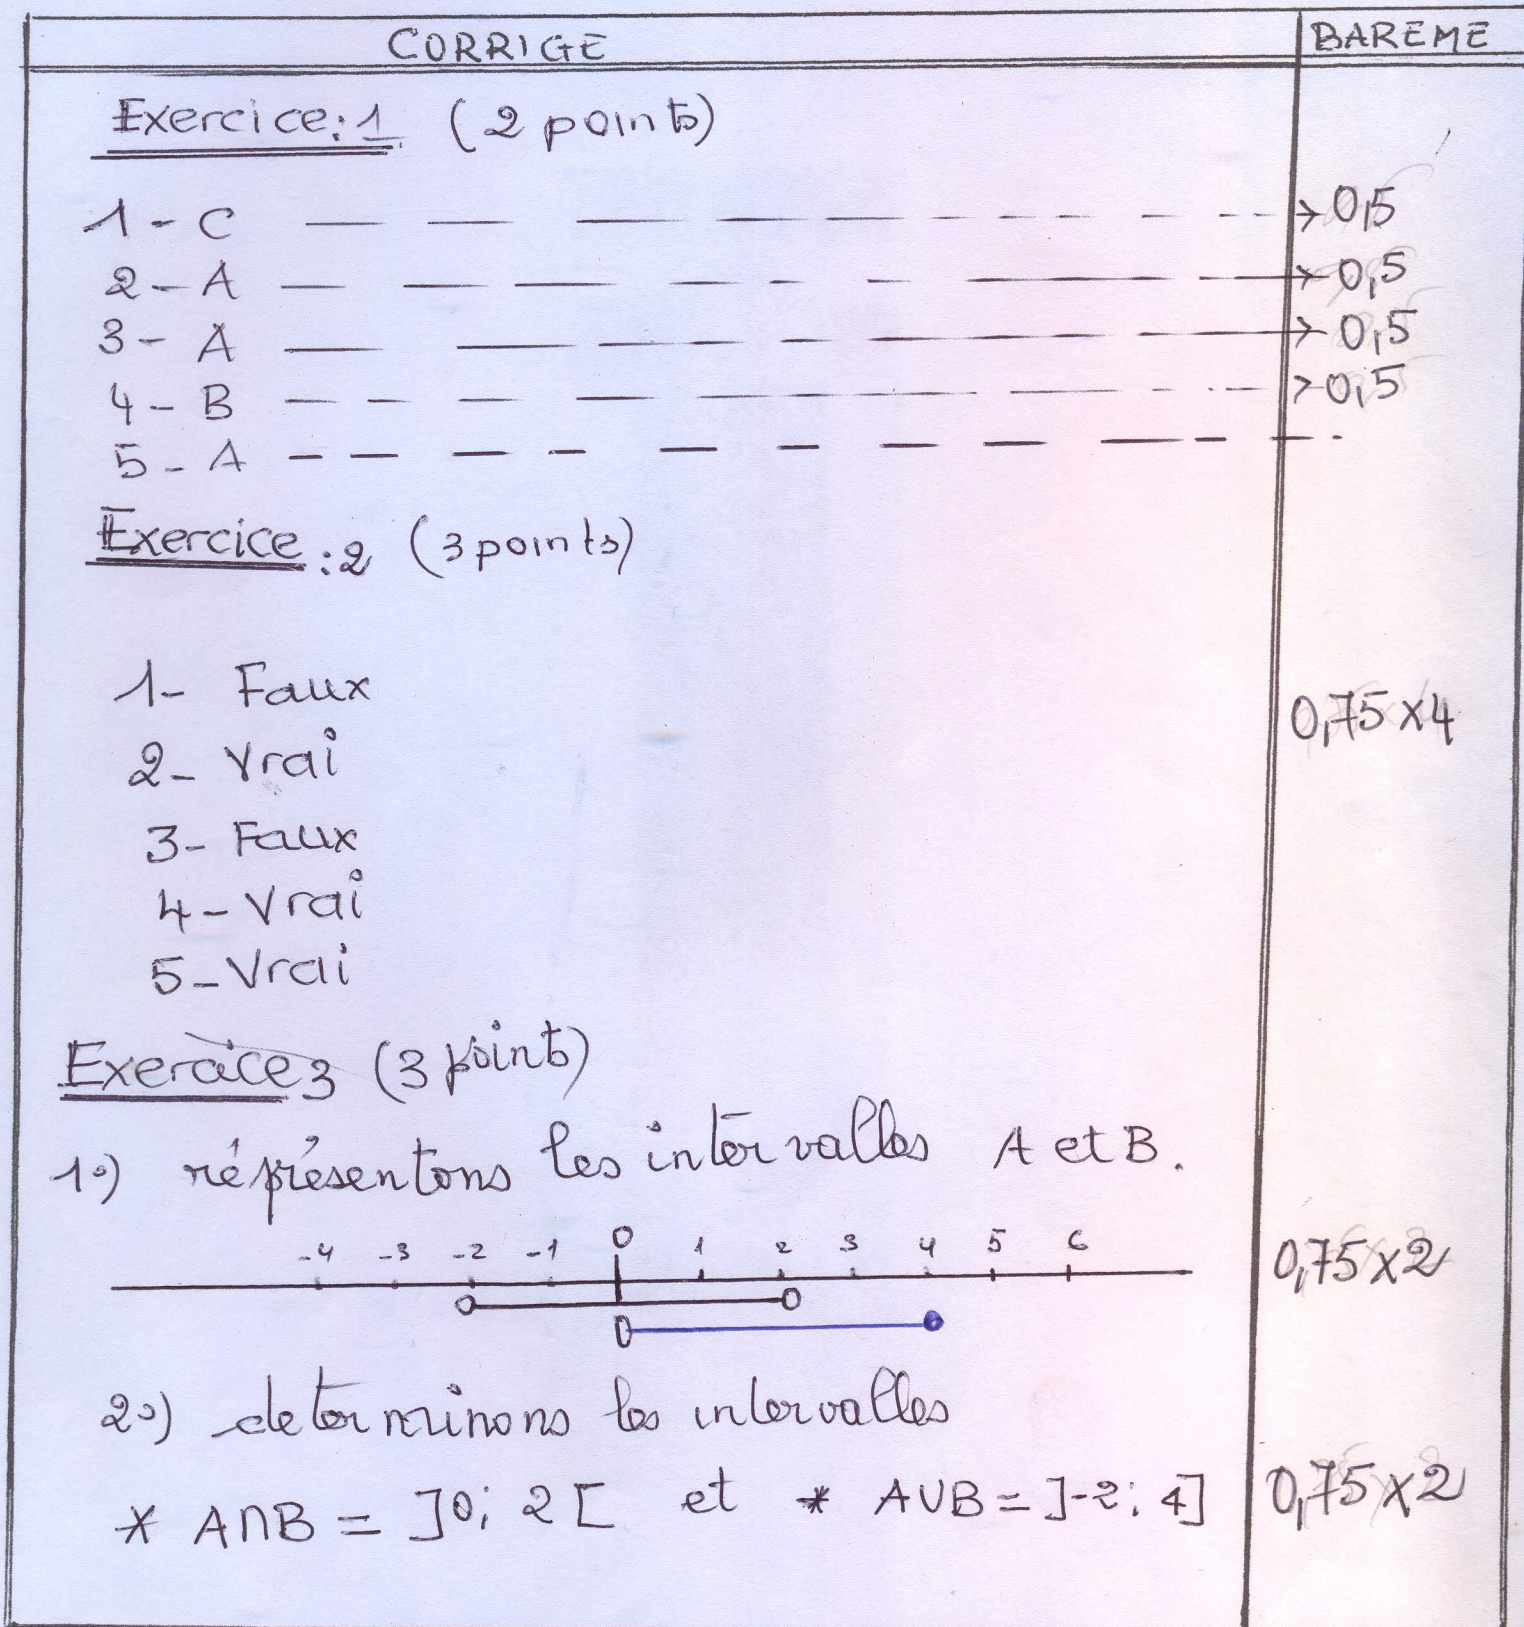 CORRIGE BAREME
Exercice:1 (2 points)
1 - C → 0,5
2 - A → 0,5
3 - A → 0,5
4 - B > 0,5
5 - A
Exercice:2 (3 points)
1- Faux
0,75 x 4
2- Vrai
3- Faux
4- Vrai
5- Vrai
Exercice 3 (3 points)
1°) réprésentons les intervalles A et B.
-4 -3 -2 -1 0 1 2 3 4 5 6 0,75 x 2
2°) determinons les intervalles
* A∩B = ]0; 2[ et * A∪B = ]-2; 4] 0,75 x 2